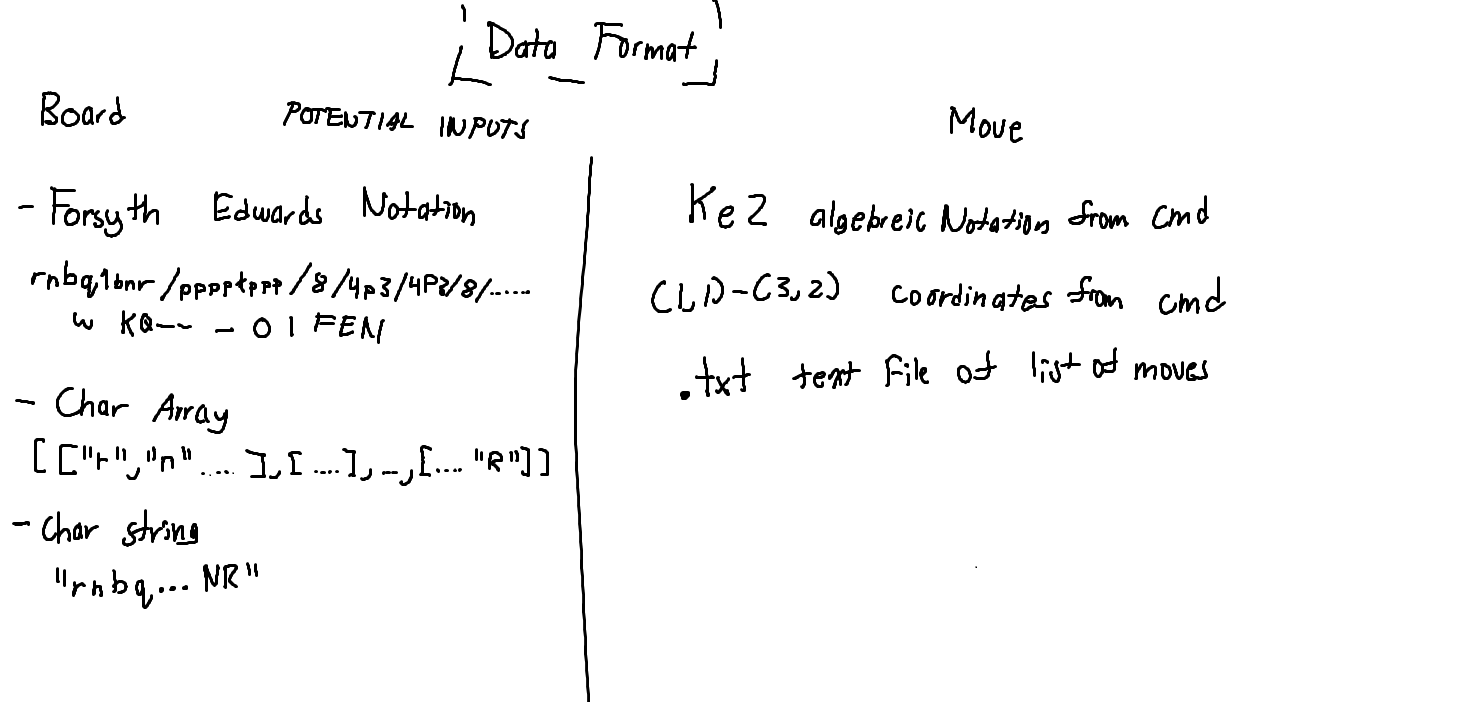 Data Format
Board POTENTIAL INPUTS Move
- Forsyth Edwards Notation
rnbq1bnr/ppppkppp/8/4p3/4P3/8/......
w KQ-- - 0 1 FEN
- Char Array
[["r","n" ..... ],[ ....],_,[.... "R"]]
- Char string
"rnbq... NR"
Ke2 algebreic Notation from cmd
(1,1)-(3,2) coordinates from cmd
.txt text file of list of moves